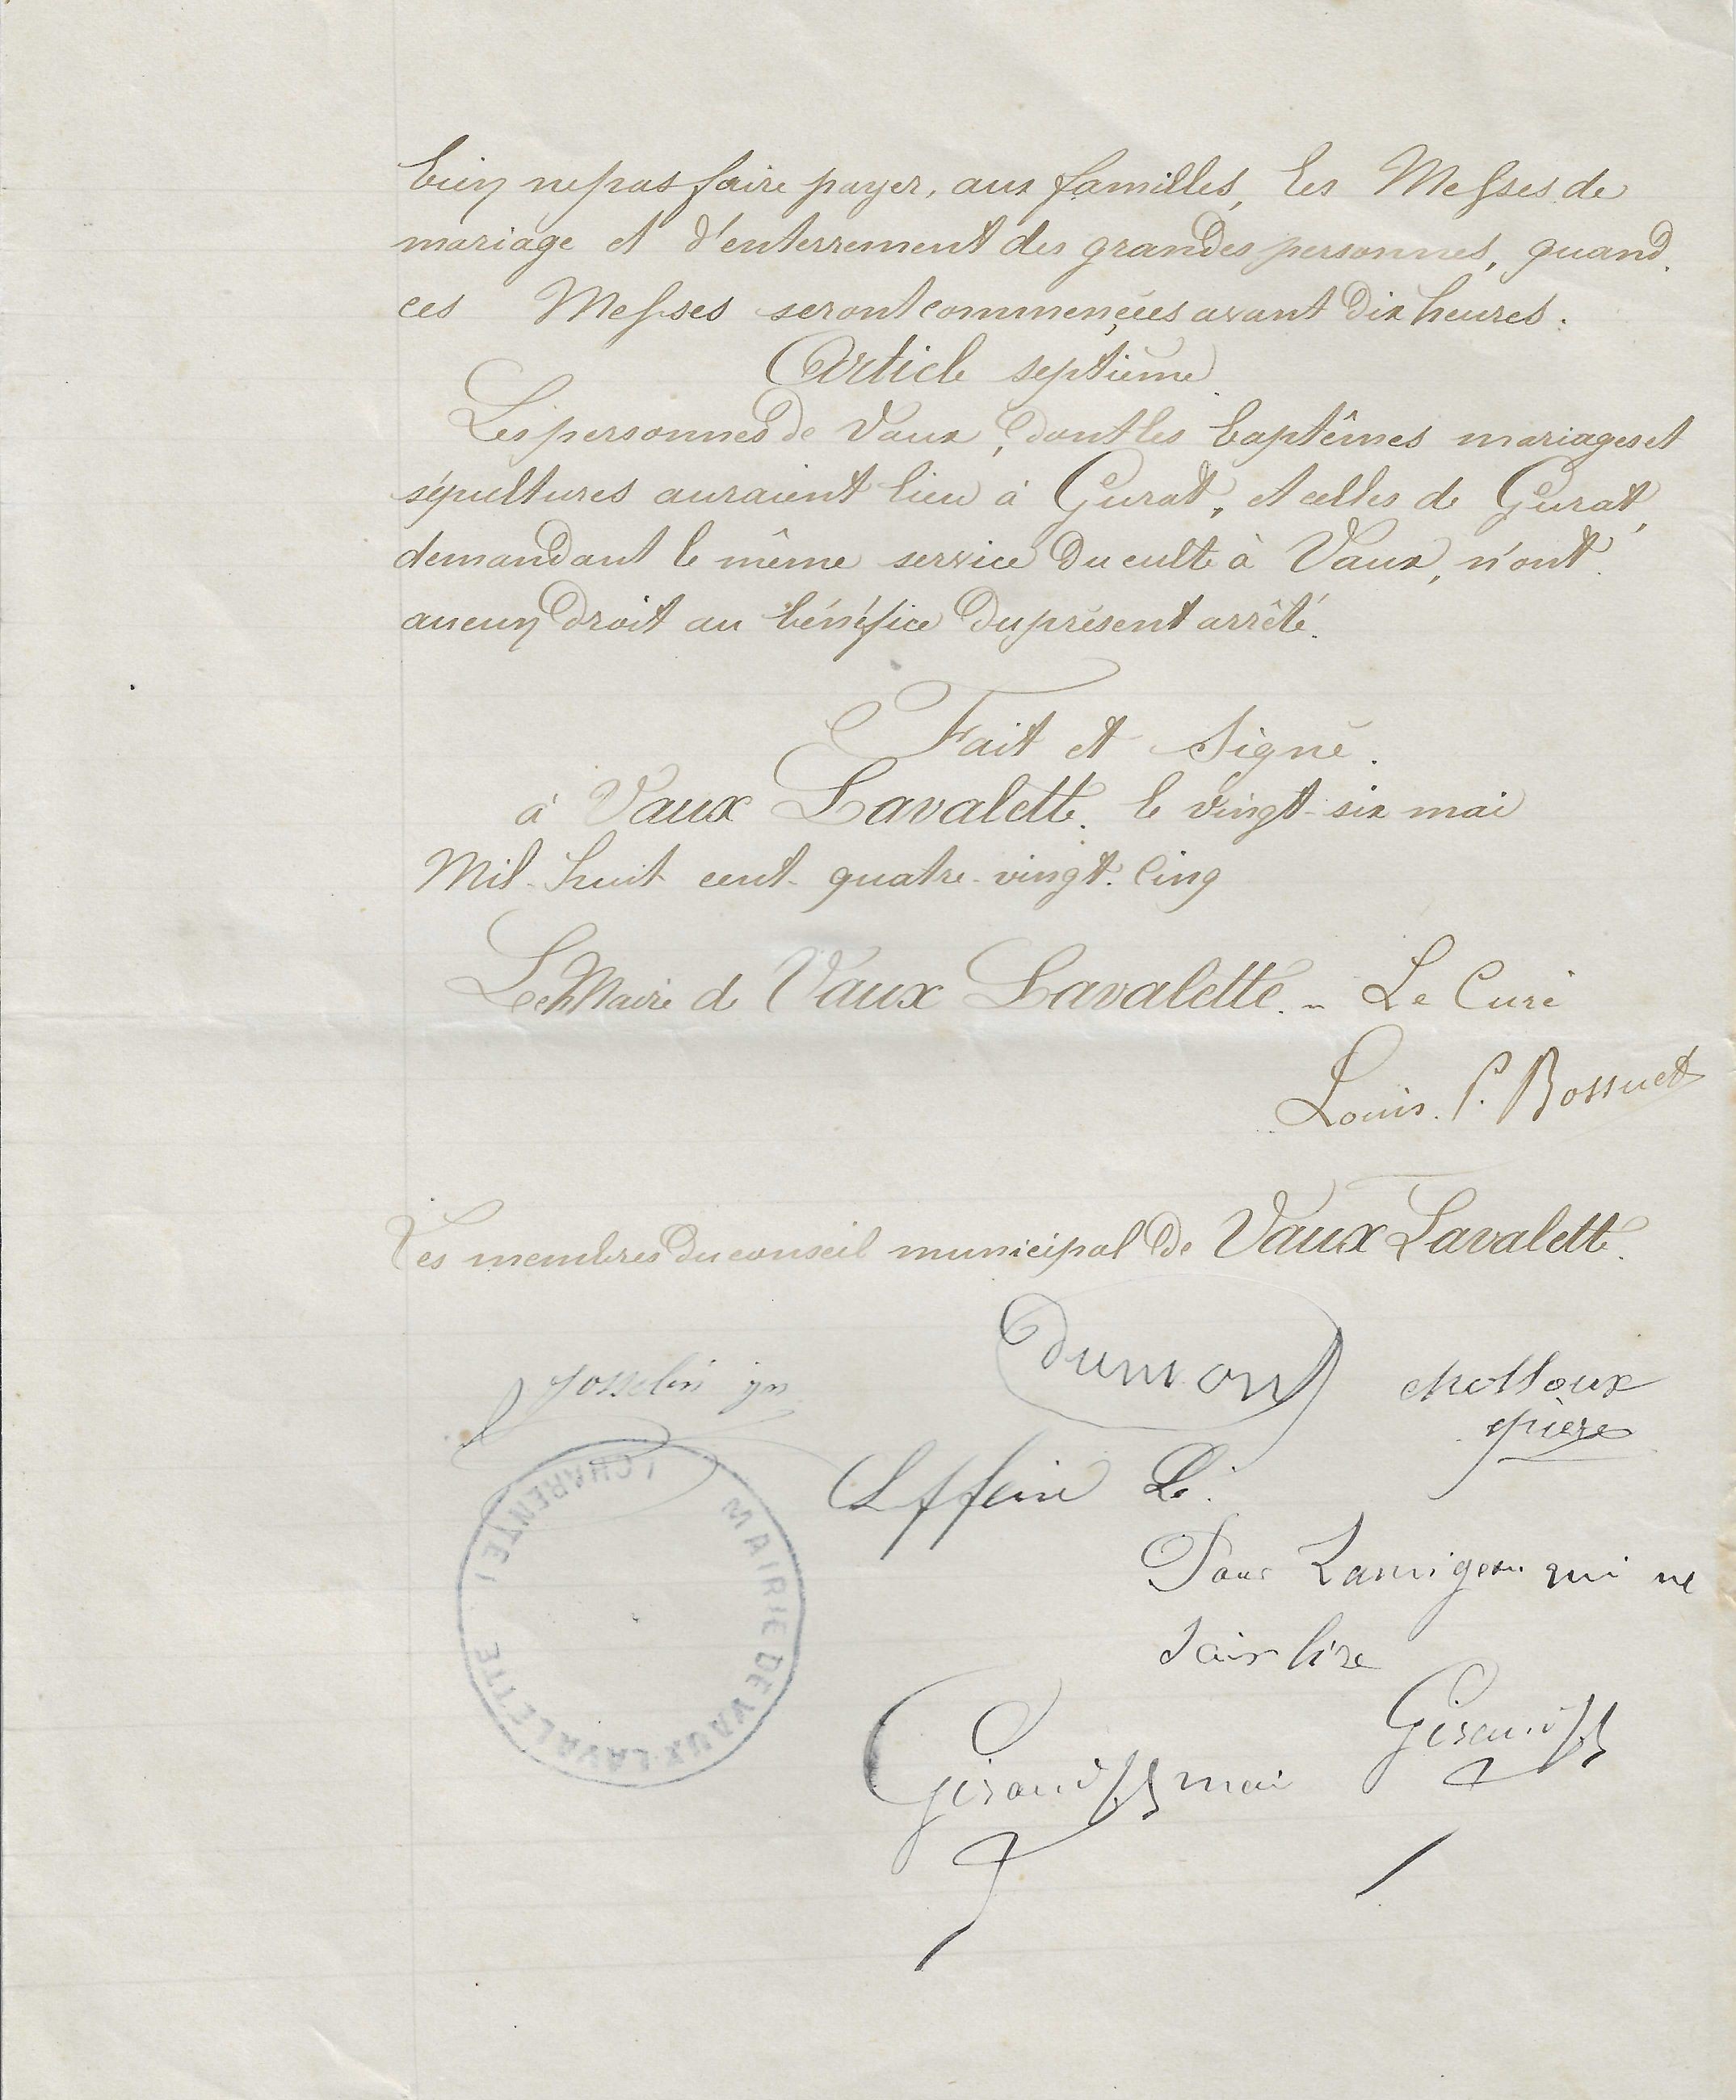 bien ne pas faire payer, aux familles, les Messes de
mariage et d'enterrement des grandes personnes, quand
ces Messes seront commencées avant dix heures.
Article septième
Les personnes de Vaux, dont les baptêmes mariages et
sépultures auraient lieu à Gurat, et celles de Gurat,
demandant le même service du culte à Vaux, n'ont
aucun droit au bénéfice du présent arrêté.
Fait et Signé.
à Vaux Lavalette. le vingt-six mai
Mil-huit cent-quatre-vingt. Cinq
Le Maire de Vaux Lavalette. - Le Curé
Louis. P. Bossuet
Les membres du conseil municipal de Vaux Lavalette.
Josselin jn Dumont
pierre
Pour qui ne
sais lire
Giraud
Giraud
MAIRIE DE VAUX-LAVALETTE
(CHARENTE)